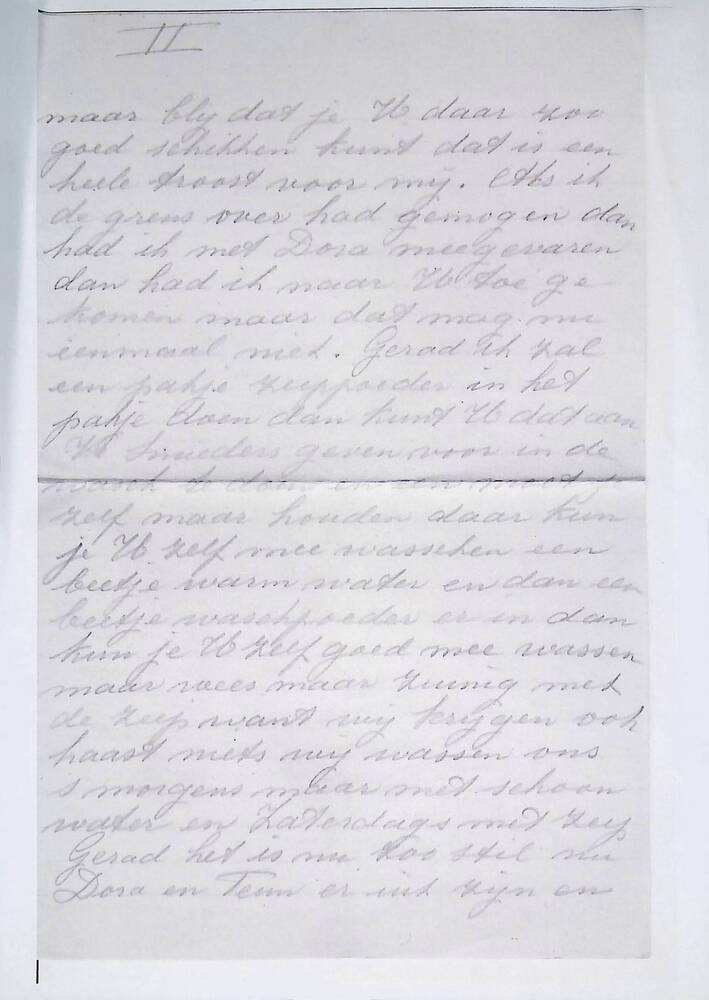 II
maar bly dat je U daar zoo
goed schikken kunt dat is een
heele troost voor my. Als ik
de grens over had gemogen dan
had ik met Dora meegevaren
dan had ik naar U toe ge
komen maar dat mag nu
eenmaal niet. Gerad ik zal
een pakje zeeppoeder in het
pakje doen dan kunt U dat aan
Smieders geven voor in de
wasch te doen en een moet je
zelf maar houden daar kun
je U zelf mee wasschen een
beetje warm water en dan een
beetje waschpoeder er in dan
kun je U zelf goed mee wassen
maar wees maar zuinig met
de zeep want wy krygen ook
haast niets wy wassen ons
s morgens maar met schoon
water en Zaterdags met zeep
Gerad het is nu zoo stil nu
Dora en Teun er uit zyn en